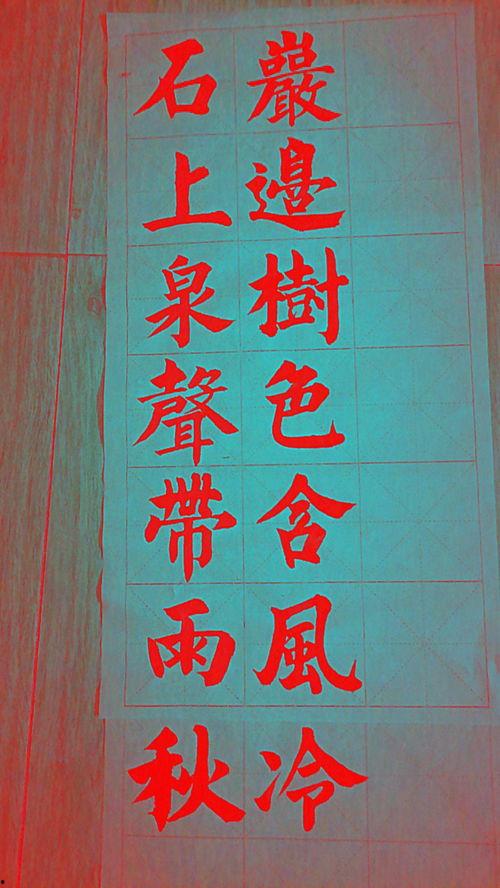 巖邉樹色含風冷
石上泉聲帶雨秋